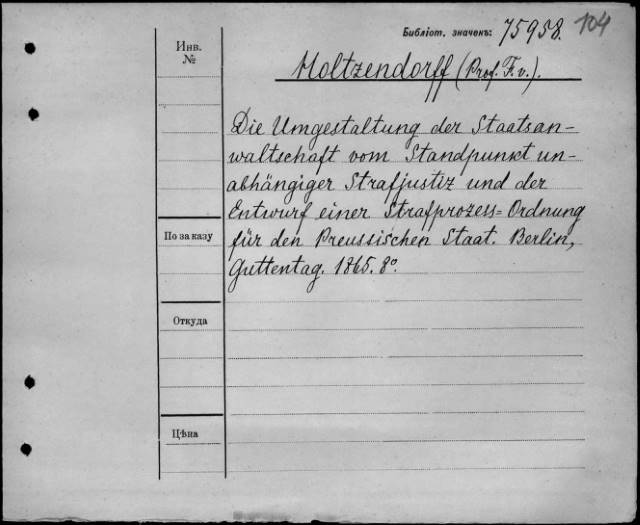 Библіот. значекъ: 75958. 104
Инв.
№
Holtzendorff (Prof. F. v.).
Die Umgestaltung der Staatsan-
waltschaft vom Standpunkt un-
abhängiger Strafjustiz und der
Entwurf einer Strafprozess=Ordnung
По заказу
für den Preussischen Staat. Berlin,
Guttentag. 1865. 8º.
Откуда
Цѣна